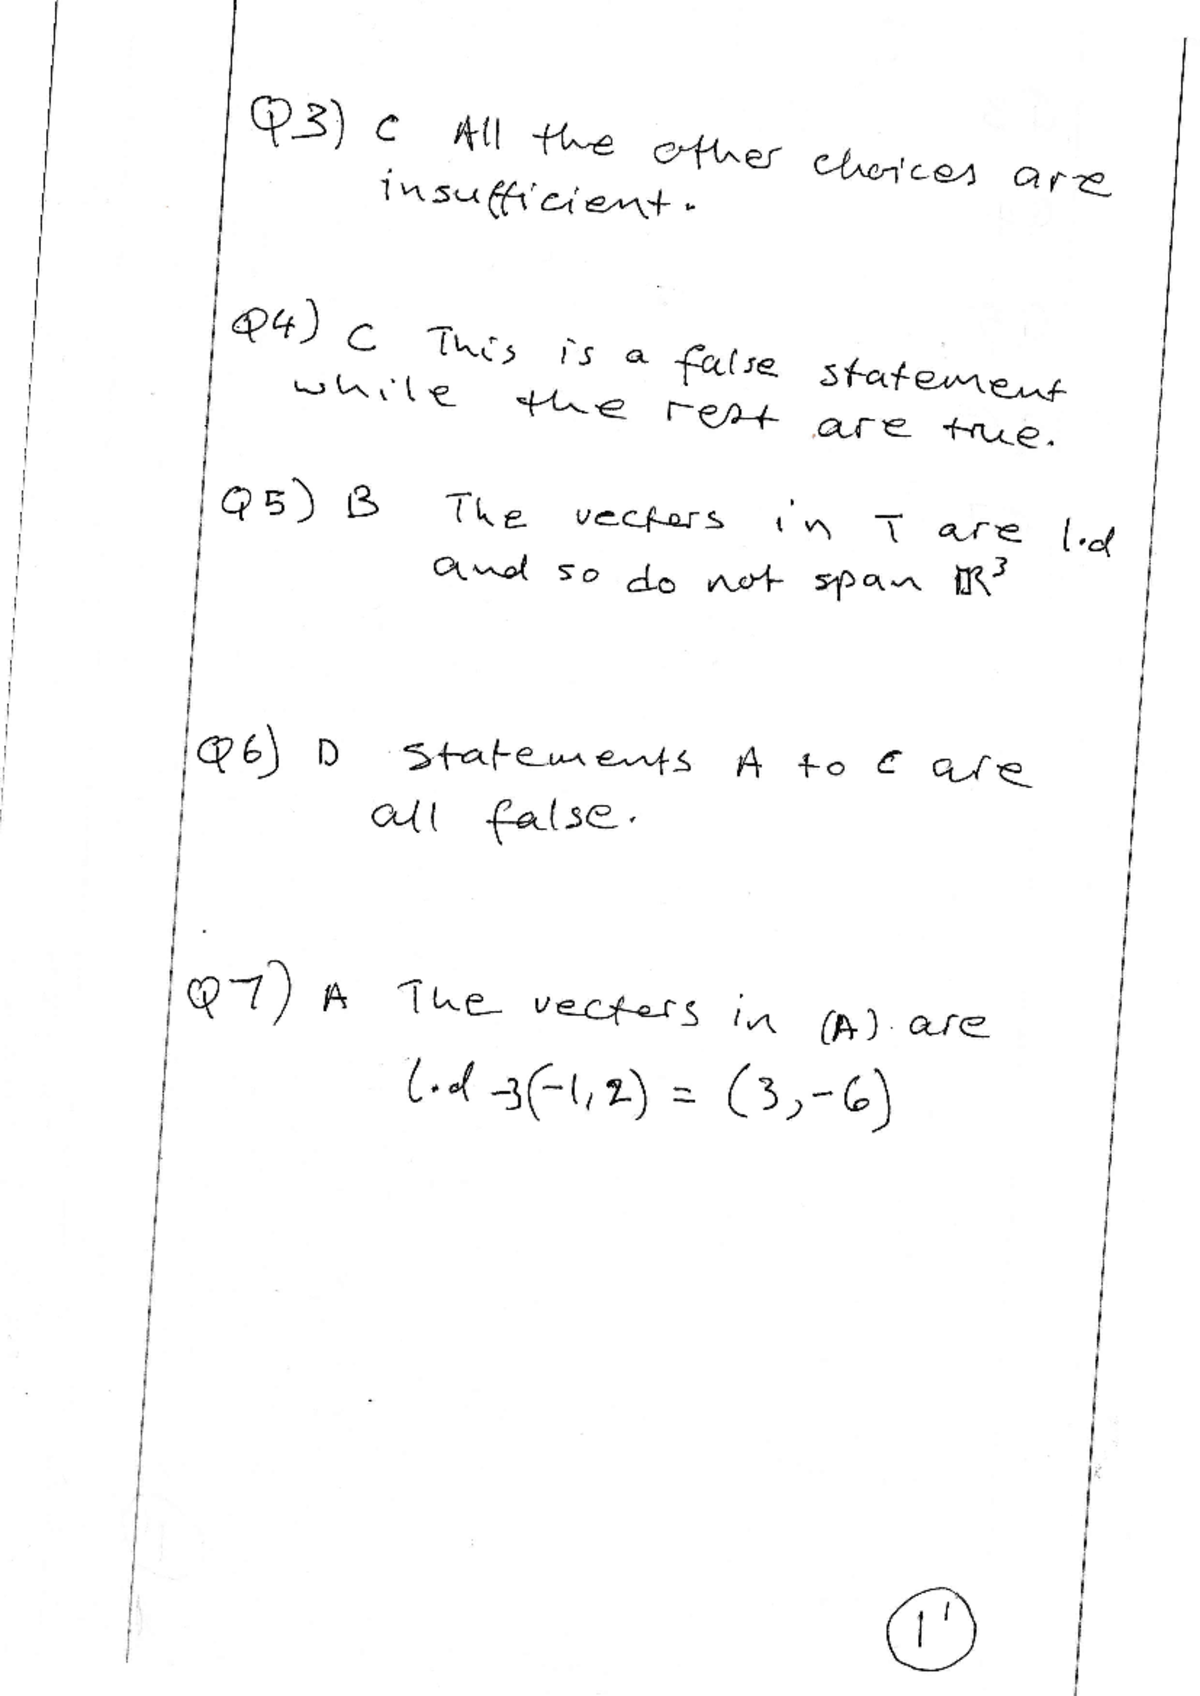 Q3) C All the other choices are
insufficient.
Q4) C This is a false statement
while the rest are true.
Q5) B The vectors in T are l.d
and so do not span ℝ³
Q6) D Statements A to C are
all false.
Q7) A The vectors in (A) are
l.d -3(-1,2) = (3,-6)
1'